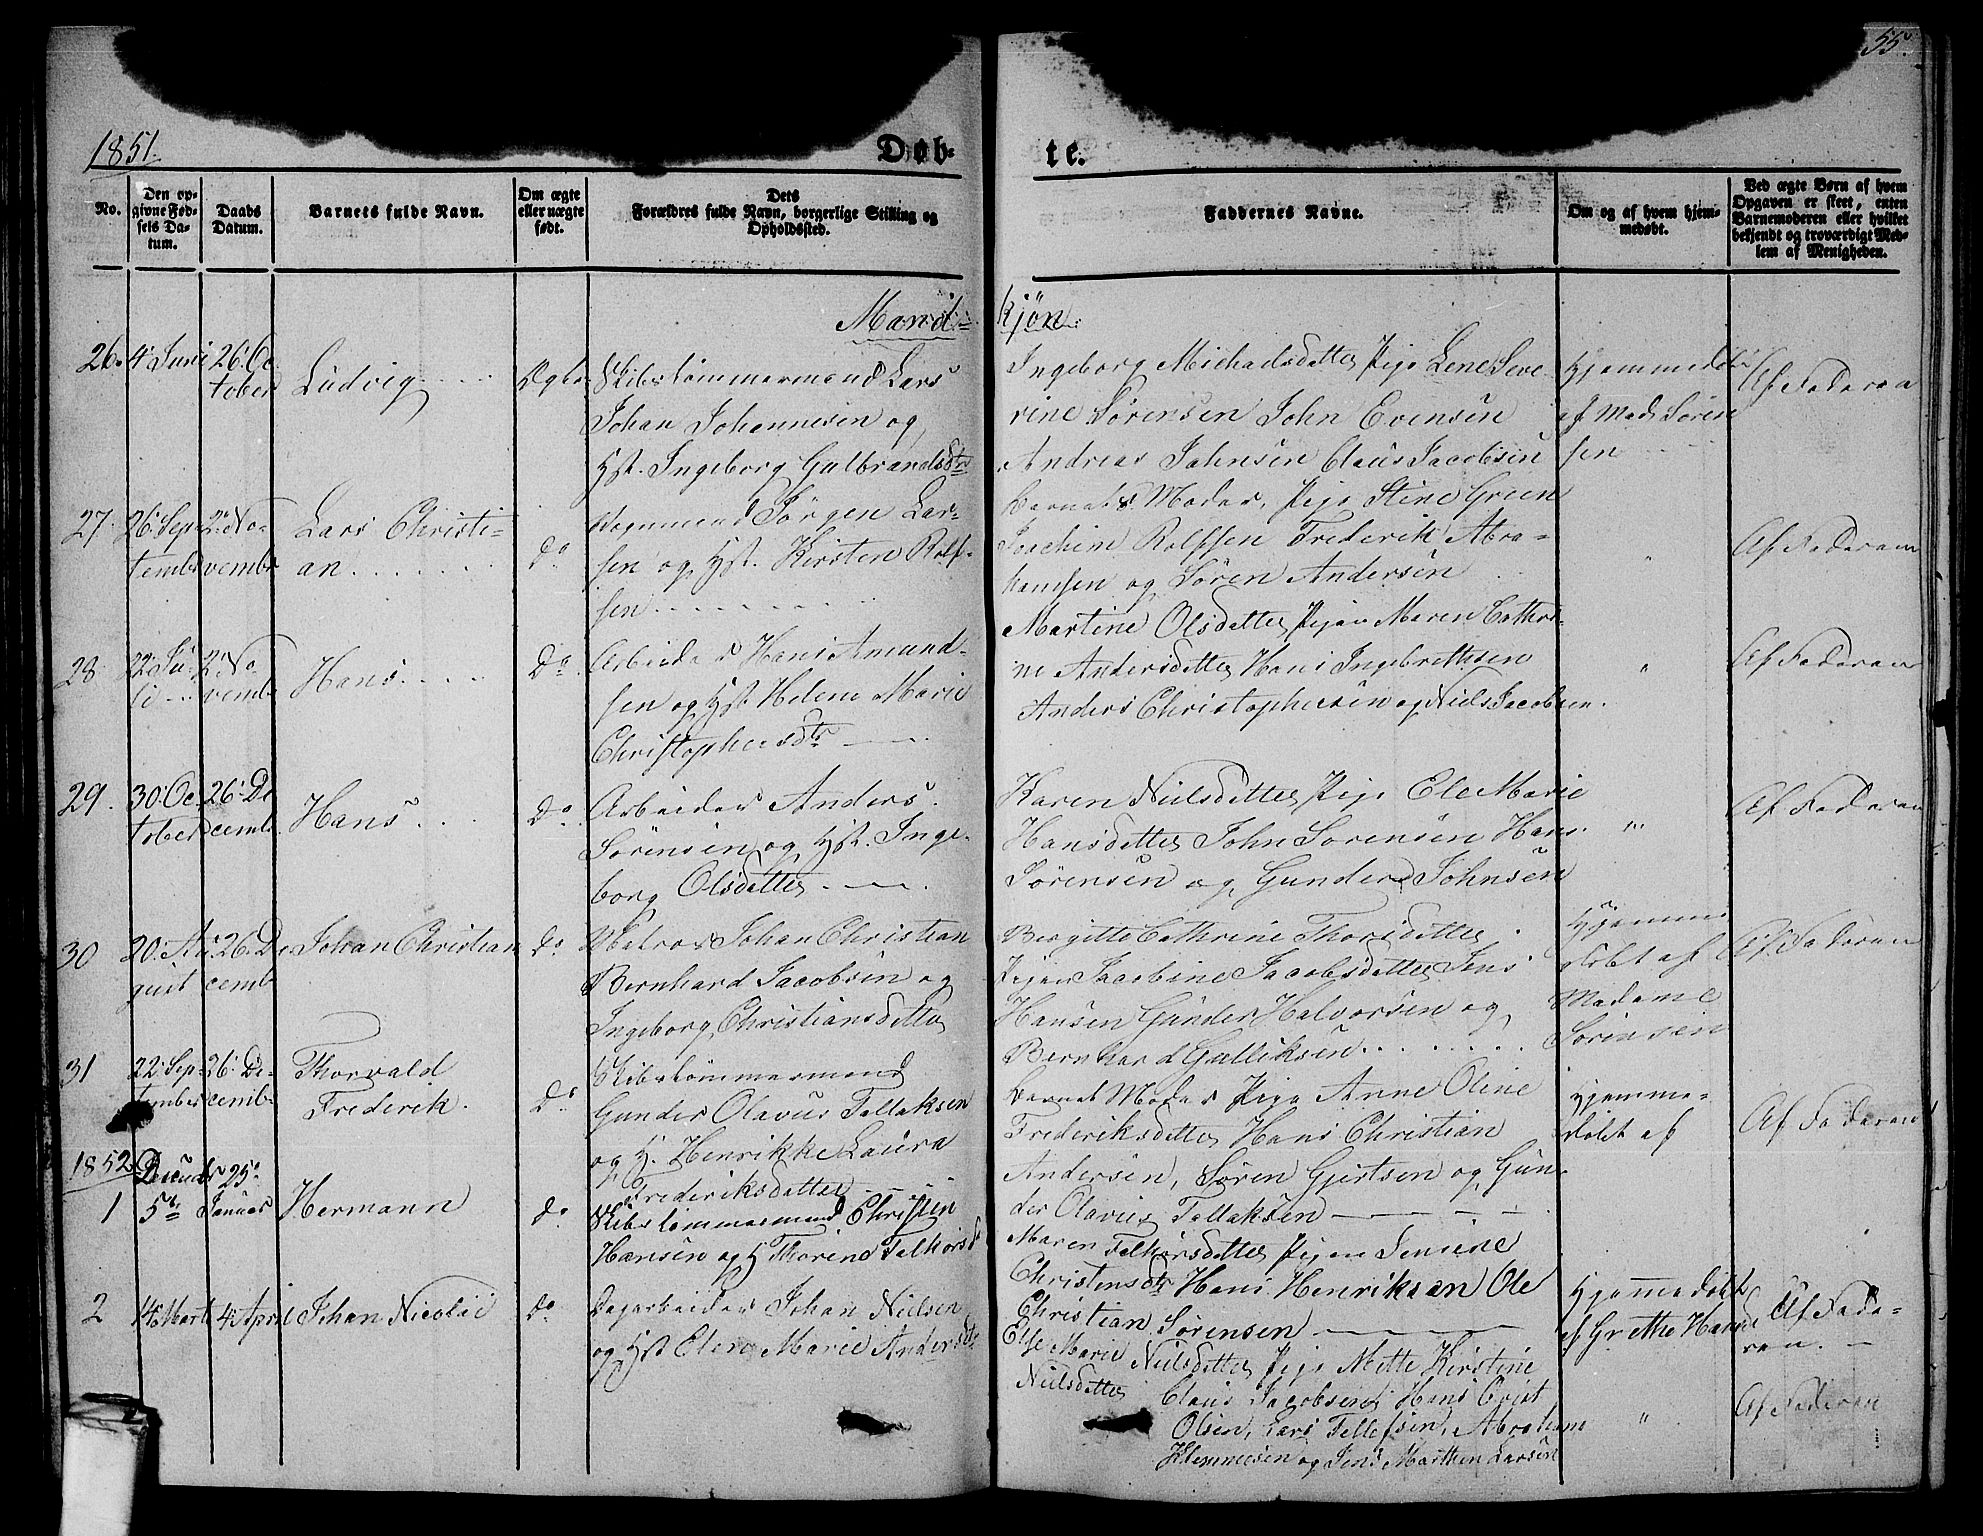 55.
1851.
Døb-
te.
No.
Den op-
givne Fød-
sels Da-
tum.
Daabs
Datum.
Barnets fulde Navn.
Om ægte
eller uægte
født.
Dets
Forældres fulde Navn, borgerlige Stilling og
Opholdssted.
Faddernes Navne.
Om og af hvem hjem-
medøbt.
Ved ægte Børn af hvem
Opgaven er skeet, enten
Barnemoderen eller hvilket
bekjendt og troværdigt Med-
lem af Menigheden.
Mand-
kjön
26. 4' Juni 26' Oc
tober
Ludvig
Ægte
Skibstømmermand Lars
Johan Johannesen og
Hst. Ingeborg Gulbrandsdtr
Ingeborg Michaelsdatter Pige Lene Seve-
rine Sørensen John Evensen
Andreas Johnsen Claus Jacobsen
Hjemmedøbt
af Mad. Søren
sen
Af Faderen
27. 26' Sep- 2' No-
tembr vembr
Lars Christi-
an
Do
Jørgen Lar-
sen og Hst. Kirsten Rolf-
sen
Barnets Moder, Pige Stine Green
Joachim Rolfsen Frederik Abra-
hamsen og Søren Andersen
"
Af Faderen
28 22' Ju- 2' No
li vembr
Hans
Do
Arbeider Hans Amund-
sen og Hst Helene Marie
Christophersdtr
Martine Olsdatter Pigen Maren Cathri-
ne Andersdatter Hans Ingebrethsen
Anders Christophersen og Niels Jacobsen.
"
Af Faderen
29. 30' Oc 26' De
tober cembr
Hans
Do
Arbeider Anders
Sørensen og Hst. Inge-
borg Olsdatter
Karen Nielsdatter Pige Ele Marie
Hansdatter John Sørensen Hans
Sørensen og Gunder Johnsen
"
Af Faderen
30 20' Au 26' De
gust cembr
Johan Christian
Do
Matros Johan Christian
Bernhard Jacobsen og
Ingeborg Christiansdatter
Birgitte Cathrine Thorsdatter
Pigen Jacobine Jacobsdatter Jens
Hansen Gunder Halvorsen og
Bernhard Gulliksen
Hjemme
døbt af
Madame
Sørensen
Af Faderen
31 22' Sep- 26' De-
tember cembr
Thorvald
Frederik.
Do
Skibstømmermand
Gunder Olavus Tellaksen
og H. Henrikke Laura
Frederiksdatter
Barnets Moder Pige Anne Oline
Frederiksdatter Hans Christian
Andersen, Søren Gjertsen og Gun-
der Olavus Tellaksen
Hjemme-
døbt af
Af Faderen
1852
1 Decembr 25'
5te Januar
Hermann
Do
Skibstømmermand Christen
Hansen og H Thorine
Maren Pigen Jensine
Christensdtr Hans Henriksen Ole
Christian Sørensen
Hjemmedøbt
af Grethe Hansd
Af Fade-
ren.
2 14' Marts 4' April
Johan Nicolai
Do
Dagarbeider Johan Nielsen
og Hst Elen Marie Andersdtr
Else Marie Nielsdatter Pige Mette Kirstine
Nielsdatter Claus Jacobsen Hans Qvist
Olsen, Lars Tellefsen, Abraham
Klemmetsen og Jens Marthin Larsen
"
Af Faderen